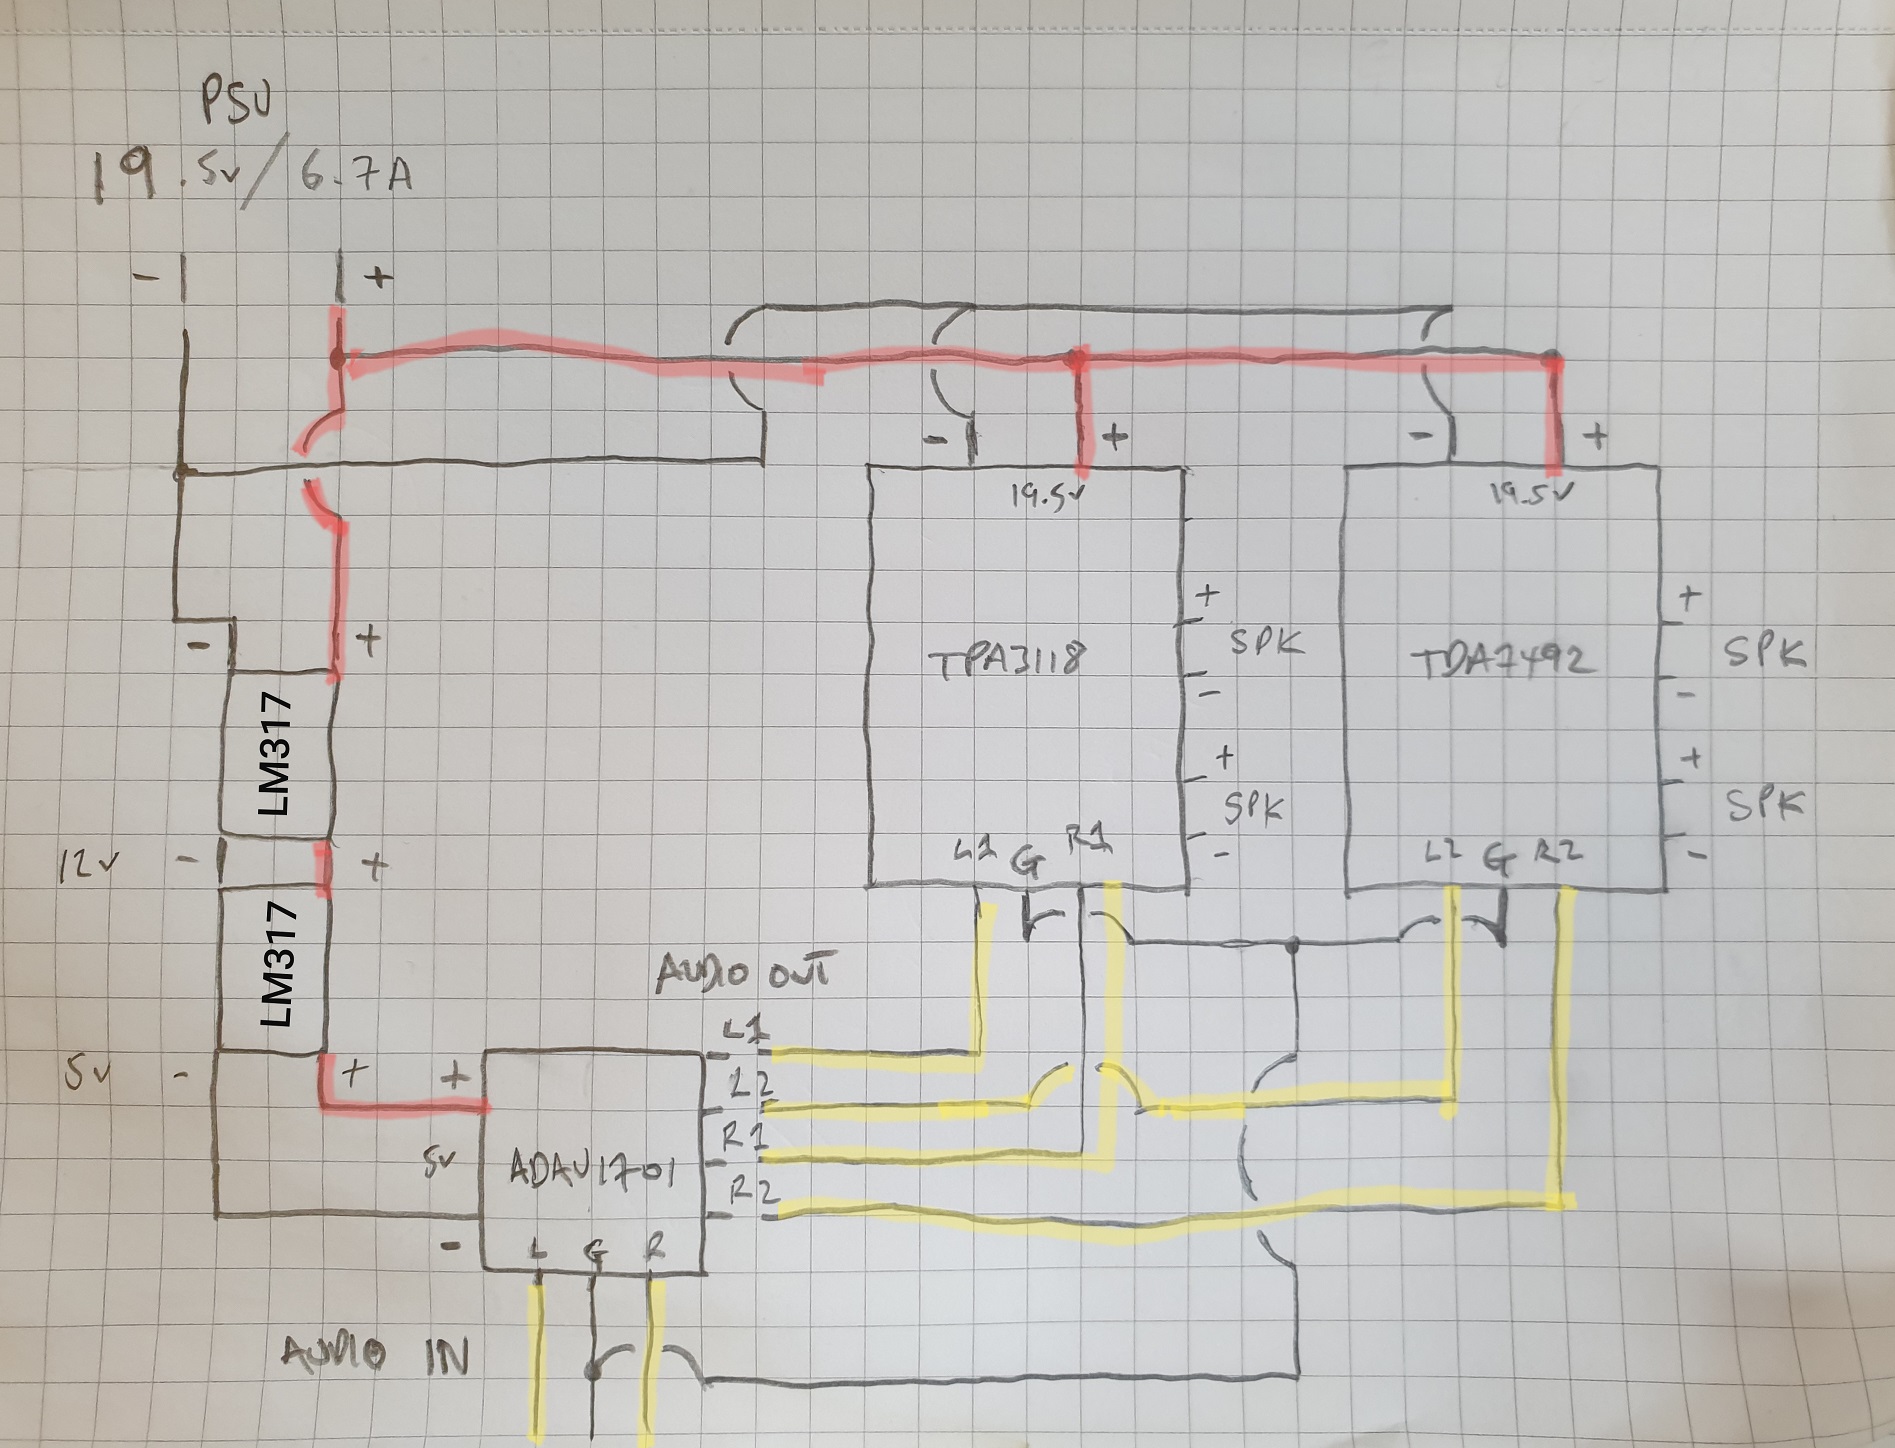 PSU
19.5v/6.7A
- +
- + - +
19.5v 19.5v
- +
+ +
SPK SPK
TPA3118 TDA7492
- -
LM317
+ +
SPK SPK
- -
L1 G R1 L2 G R2
12v - +
LM317
AUDIO OUT
L1
5v - + +
L2
R1
5v ADAV1701
R2
-
L G R
AUDIO IN